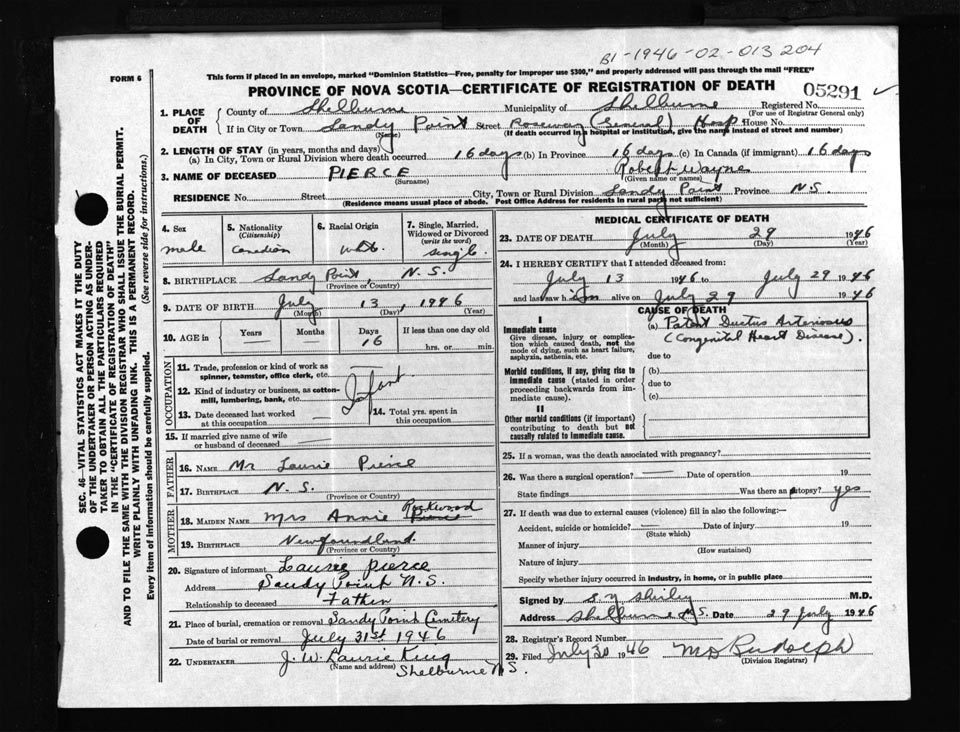 B1-1946-02-013204
FORM 6
This form if placed in an envelope, marked "Dominion Statistics—Free, penalty for improper use $300," and properly addressed will pass through the mail "FREE"
PROVINCE OF NOVA SCOTIA—CERTIFICATE OF REGISTRATION OF DEATH
05291
1. PLACE OF DEATH
County of Shelburne Municipality of Shelburne Registered No.
(For use of Registrar General only)
If in City or Town Sandy Point Street Roseway (General) Hosp House No.
(Name) (If death occurred in a hospital or institution, give the name instead of street and number)
2. LENGTH OF STAY (in years, months and days)
(a) In City, Town or Rural Division where death occurred 16 days (b) In Province 16 days (c) In Canada (if immigrant) 16 days
3. NAME OF DECEASED PIERCE Robert Wayne
(Surname) (Given name or names)
RESIDENCE No. Street City, Town or Rural Division Sandy Point Province N.S.
(Residence means usual place of abode. Post Office Address for residents in rural parts not sufficient)
4. Sex male
5. Nationality (Citizenship) Canadian
6. Racial Origin
7. Single, Married, Widowed or Divorced (write the word) single
8. BIRTHPLACE Sandy Point, N.S.
(Province or Country)
9. DATE OF BIRTH July 13, 1946
(Month) (Day) (Year)
10. AGE in Years — Months — Days 16 If less than one day old
hrs. or min.
OCCUPATION
11. Trade, profession or kind of work as spinner, teamster, office clerk, etc. —
12. Kind of industry or business, as cotton-mill, lumbering, bank, etc. Infant
13. Date deceased last worked at this occupation —
14. Total yrs. spent in this occupation
15. If married give name of wife or husband of deceased —
FATHER
16. NAME Mr Laurie Pierce
17. BIRTHPLACE N.S.
(Province or Country)
MOTHER
18. MAIDEN NAME Mrs Annie Rockwood Pierce
19. BIRTHPLACE Newfoundland
(Province or Country)
20. Signature of informant Laurie Pierce
Address Sandy Point N.S.
Relationship to deceased Father
21. Place of burial, cremation or removal Sandy Point Cemetery
Date of burial or removal July 31st 1946
22. UNDERTAKER J. W. Laurie King
(Name and address) Shelburne N.S.
MEDICAL CERTIFICATE OF DEATH
23. DATE OF DEATH July 29 1946
(Month) (Day) (Year)
24. I HEREBY CERTIFY that I attended deceased from:
July 13 1946 to July 29 1946
and last saw him alive on July 29 1946
CAUSE OF DEATH
I
Immediate cause
Give disease, injury or complication which caused death, not the mode of dying, such as heart failure, asphyxia, asthenia, etc.
(a) Patent Ductus Arteriosus
(Congenital Heart Disease).
due to
Morbid conditions, if any, giving rise to immediate cause (stated in order proceeding backwards from immediate cause).
(b)
due to
(c)
II
Other morbid conditions (if important) contributing to death but not causally related to immediate cause.
25. If a woman, was the death associated with pregnancy?
26. Was there a surgical operation? — Date of operation 19
State findings Was there an autopsy? yes
27. If death was due to external causes (violence) fill in also the following:—
Accident, suicide or homicide? — Date of injury 19
(State which)
Manner of injury
(How sustained)
Nature of injury
Specify whether injury occurred in industry, in home, or in public place
Signed by Shirley M.D.
Address Shelburne N.S. Date 29 July 1946
28. Registrar's Record Number
29. Filed July 30 1946 Rudolph
(Division Registrar)
SEC. 46—VITAL STATISTICS ACT MAKES IT THE DUTY
OF THE UNDERTAKER OR PERSON ACTING AS UNDERTAKER TO OBTAIN ALL THE PARTICULARS REQUIRED
IN THE "CERTIFICATE OF REGISTRATION OF DEATH"
AND TO FILE THE SAME WITH THE DIVISION REGISTRAR WHO SHALL ISSUE THE BURIAL PERMIT.
WRITE PLAINLY WITH UNFADING INK. THIS IS A PERMANENT RECORD.
Every item of information should be carefully supplied. (See reverse side for instructions.)